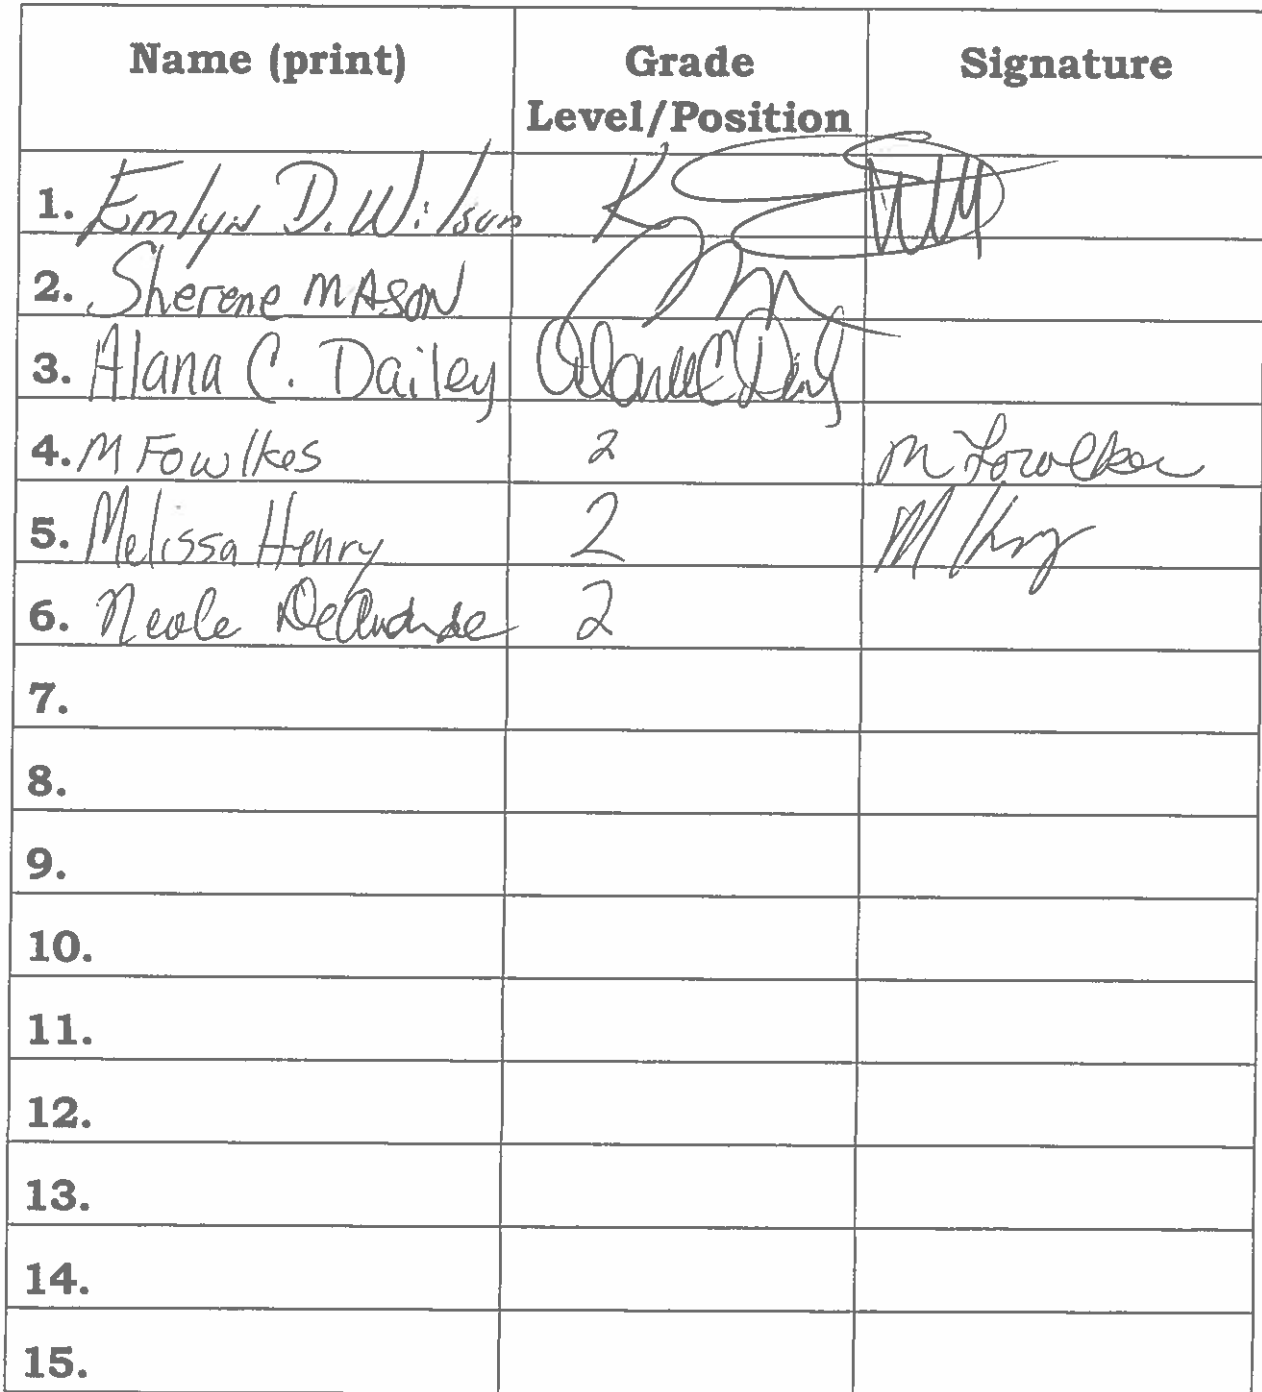 Name (print) Grade Level/Position Signature
1. Emlyn D. Wilson K
2. Sherene MASON
3. Alana C. Dailey Alana C Dailey
4. M Fowlkes 2 M Fowlkes
5. Melissa Henry 2 M Henry
6. Nicole DeAndrade 2
7.
8.
9.
10.
11.
12.
13.
14.
15.